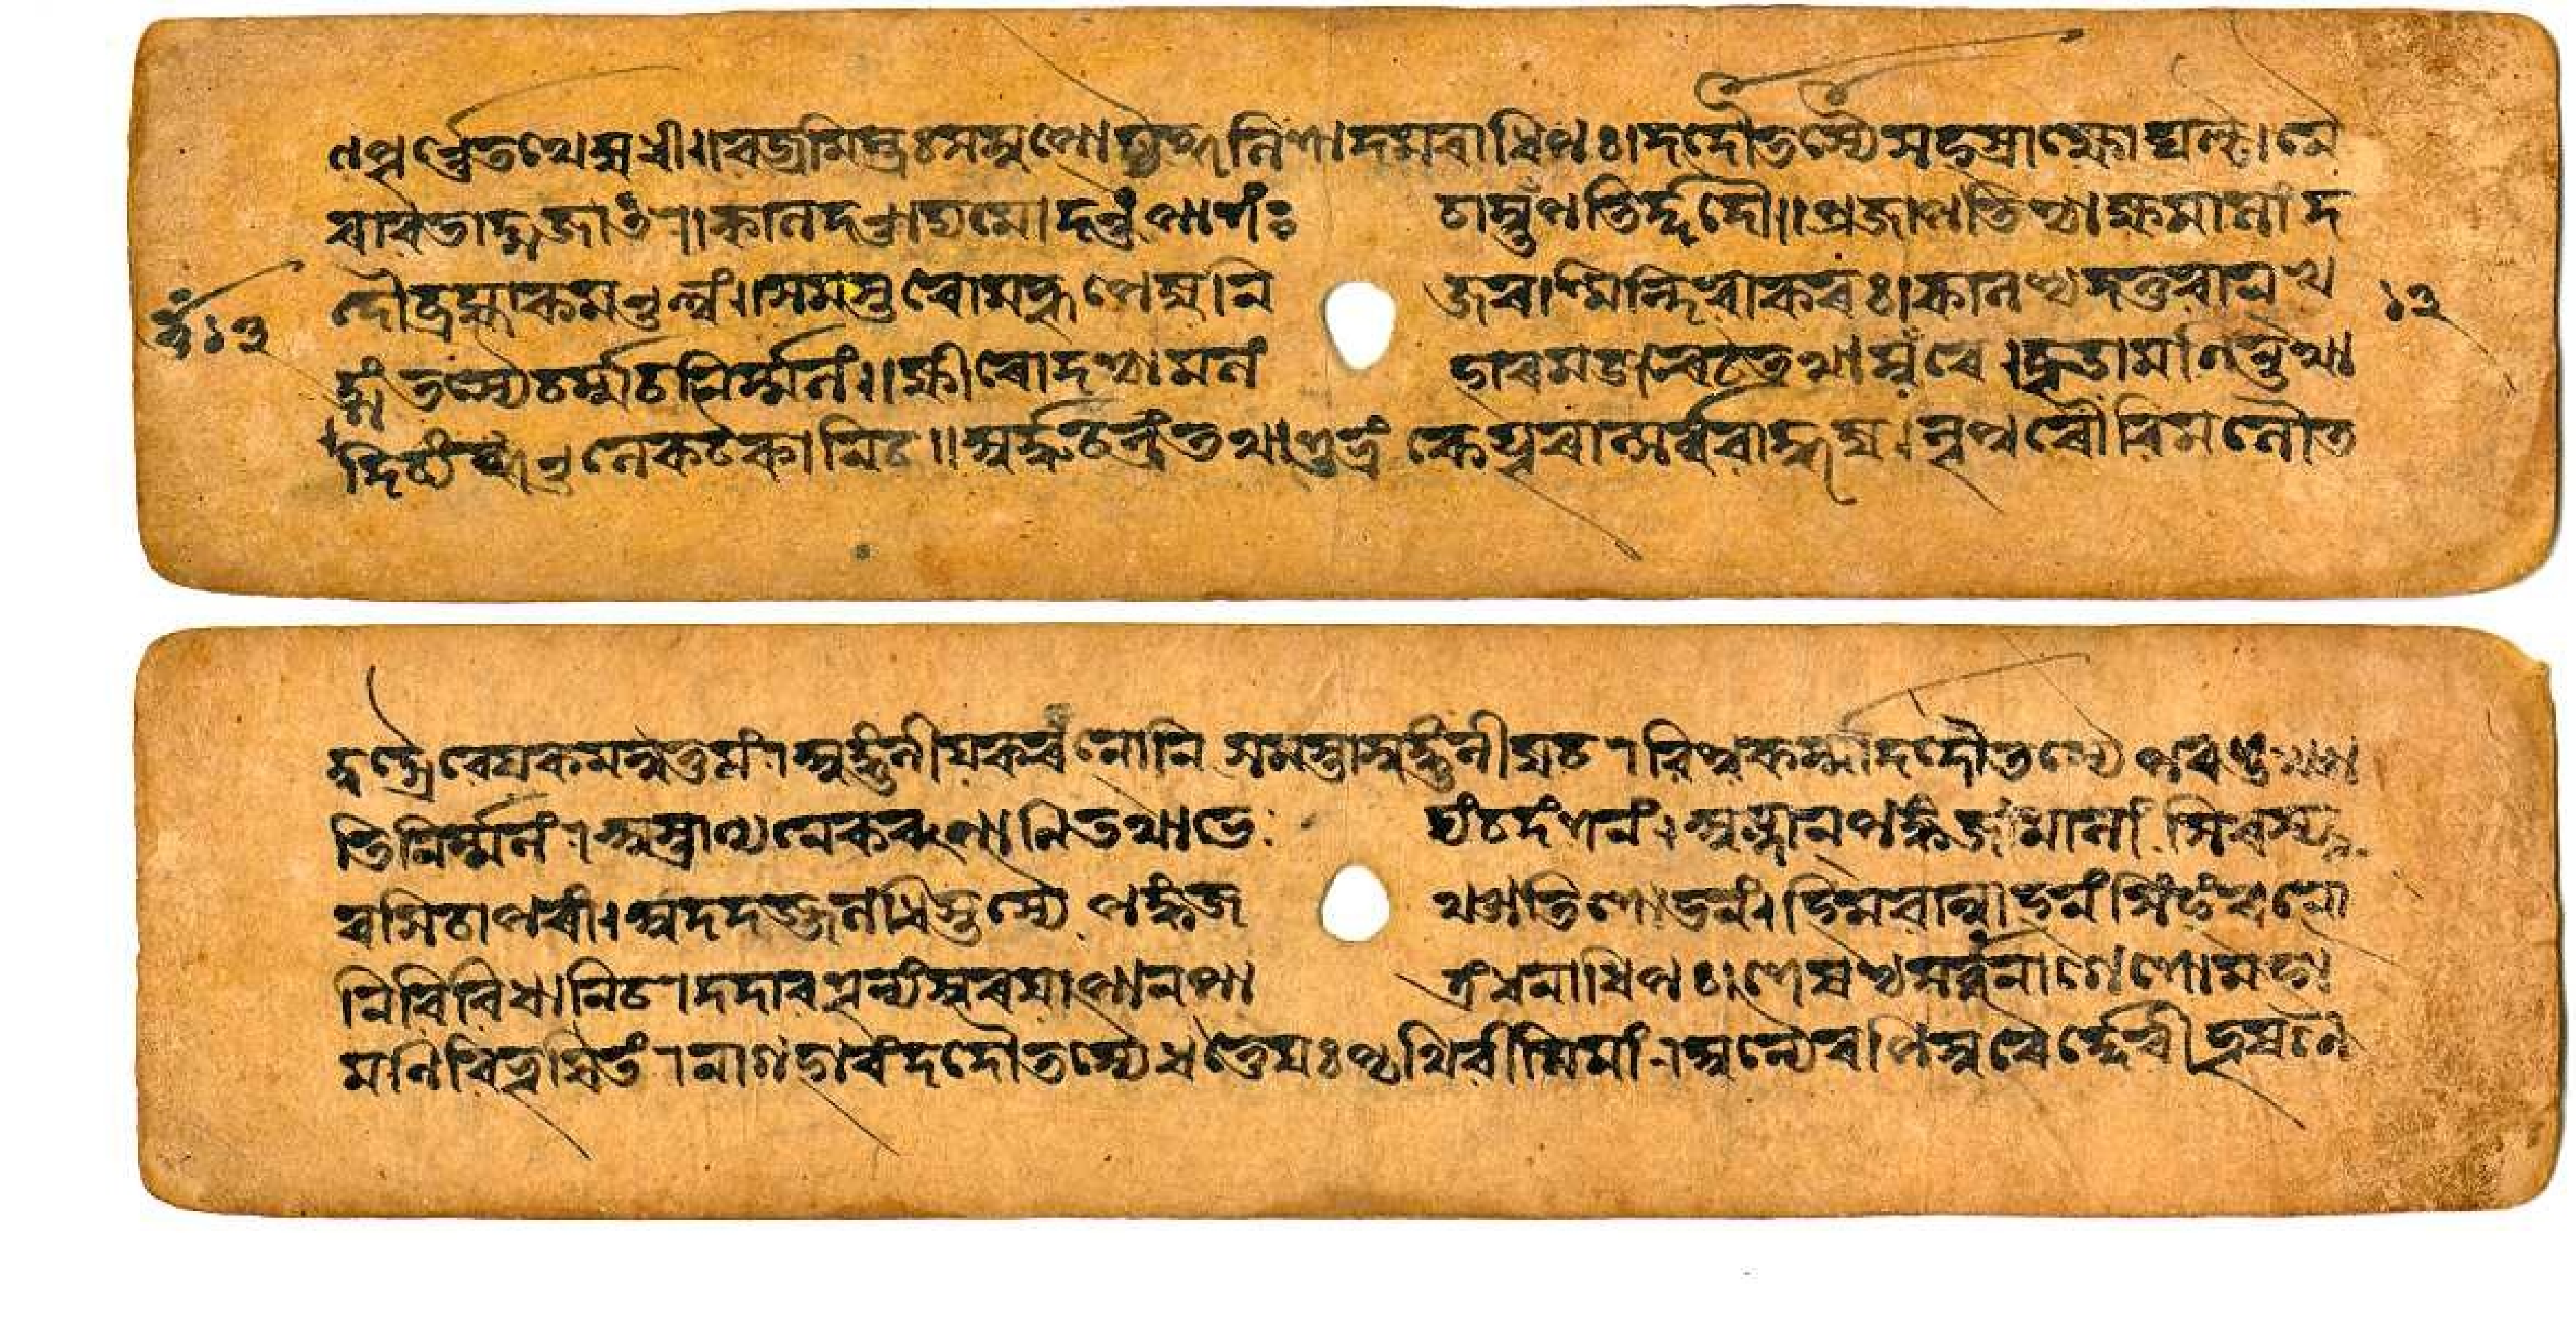 ণপূর্ণে তথেষুধী॥ বজ্রমিন্দ্রঃ সমুৎপাট্য কুলিশাদমরাধিপঃ। দদৌ তস্যৈ সহস্রাক্ষো ঘণ্টামৈ
ৰাৱতাদ্গজাৎ। কালদণ্ডাদ্যমো দণ্ডং পাশং চাম্বুপতির্দ্দদৌ॥ প্রজাপতিশ্চাক্ষমালাং দ
দৌ ব্রহ্মা কমণ্ডলুং॥ সমস্তৰোমকূপেষু নিজৰশ্মীন্দিৱাকৰঃ। কালশ্চ দত্তৱান্ খ
ড়্গং তস্যৈ চর্ম্ম চ নির্ম্মলং॥ ক্ষীৰোদশ্চামলং হাৰমজৰে চ তথাম্বৰে। চূড়ামণিন্তথা
দিব্যং কুণ্ডলে কটকানি চ॥ অর্দ্ধচন্দ্রং তথা শুভ্রং কেয়ূৰান্ সর্ব্বৱাহুষু। নূপুৰৌ ৱিমলৌ ত
দ্বদ্গ্রৈৱেয়কমনুত্তমং। অঙ্গুলীয়কৰত্নানি সমস্তাস্বঙ্গুলীষু চ। ৱিশ্বকর্ম্মা দদৌ তস্যৈ পৰশুঞ্চা
তিনির্ম্মলং। অস্ত্রাণ্যনেকৰূপাণি তথাভেদ্যং চ দংশনং। অম্লানপঙ্কজাং মালাং শিৰস্যু
ৰসি চাপৰাং। অদদজ্জলধিস্তস্যৈ পঙ্কজঞ্চাতিশোভনং। হিমৱান্ ৱাহনং সিংহং ৰত্না
নি ৱিৱিধানি চ। দদাৱশূন্যং সুৰয়া পানপাত্রং ধনাধিপঃ। শেষশ্চ সর্ব্বনাগেশো মহা
মণিৱিভূষিতং। নাগহাৰং দদৌ তস্যৈ ধত্তে যঃ পৃথিৱীমিমাং। অন্যৈৰপি সুৰৈর্দ্দেৱী ভূষণৈ